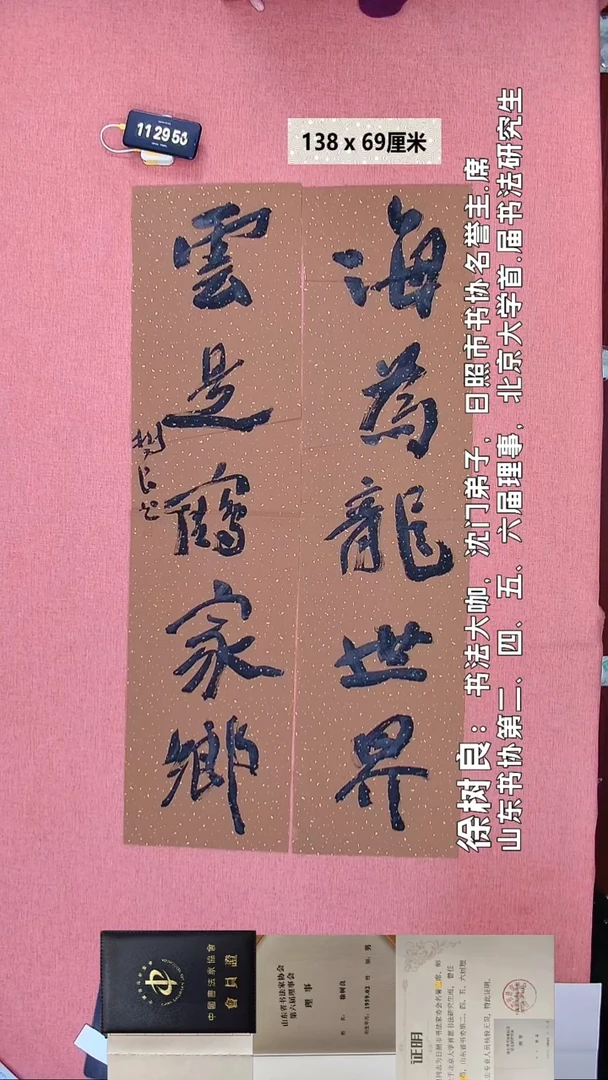 11 29 58
138 x 69厘米
海為龍世界
雲是鶴家鄉
徐树良：书法大咖，沈门弟子，日照市书协名誉主.席
山东书协第二、四、五、六届理事，北京大学首.届书法研究生
中國書法家協會
會員證
山东省书法家协会
第六届理事会
理事
徐树良
男
证明